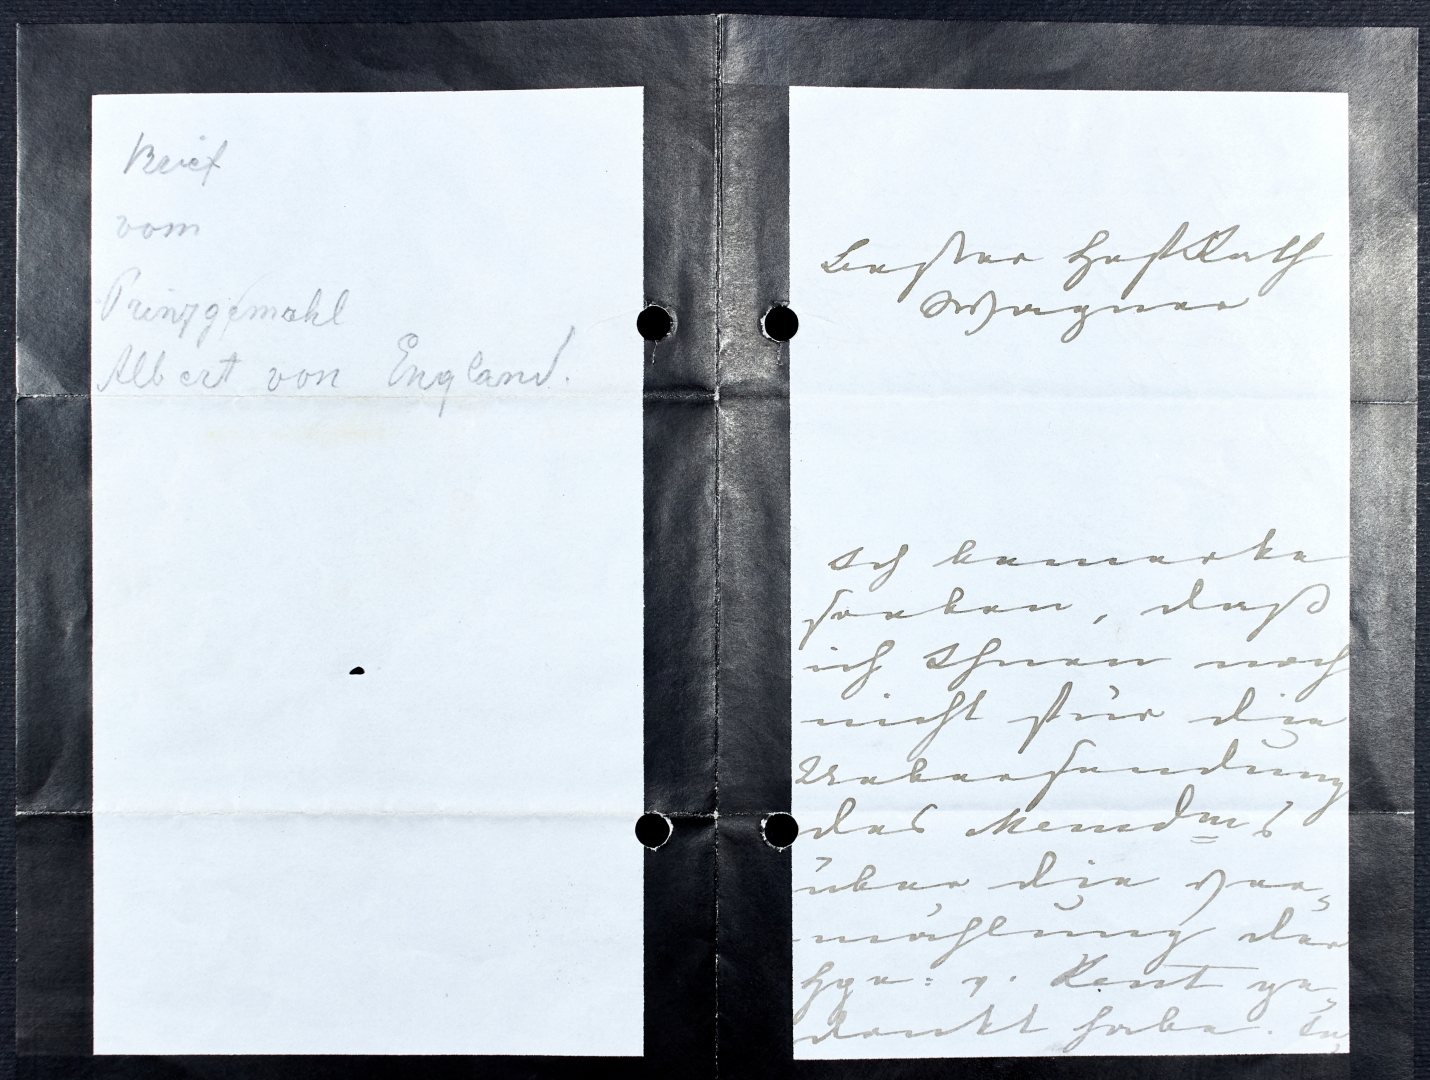 Brief
vom
Prinzgemahl
Albert von England.
Bester HofRath
Wagner
Ich bemerke
soeben, daß
ich Ihnen noch
nicht für die
Uebersendung
des Memdms
über die Ver-
mählung der
Hzn: v. Kent ge-
dankt habe. In